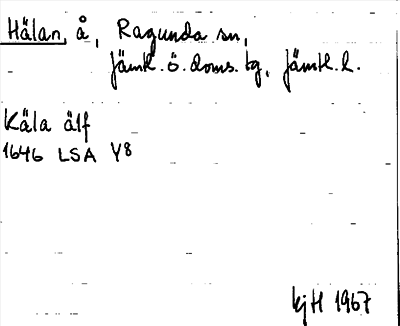 Hälan, å, Ragunda sn,
Jämtl. ö. doms. tg, Jämtl. l.
Käla älf
1646 LSA Y8
kjH 1967